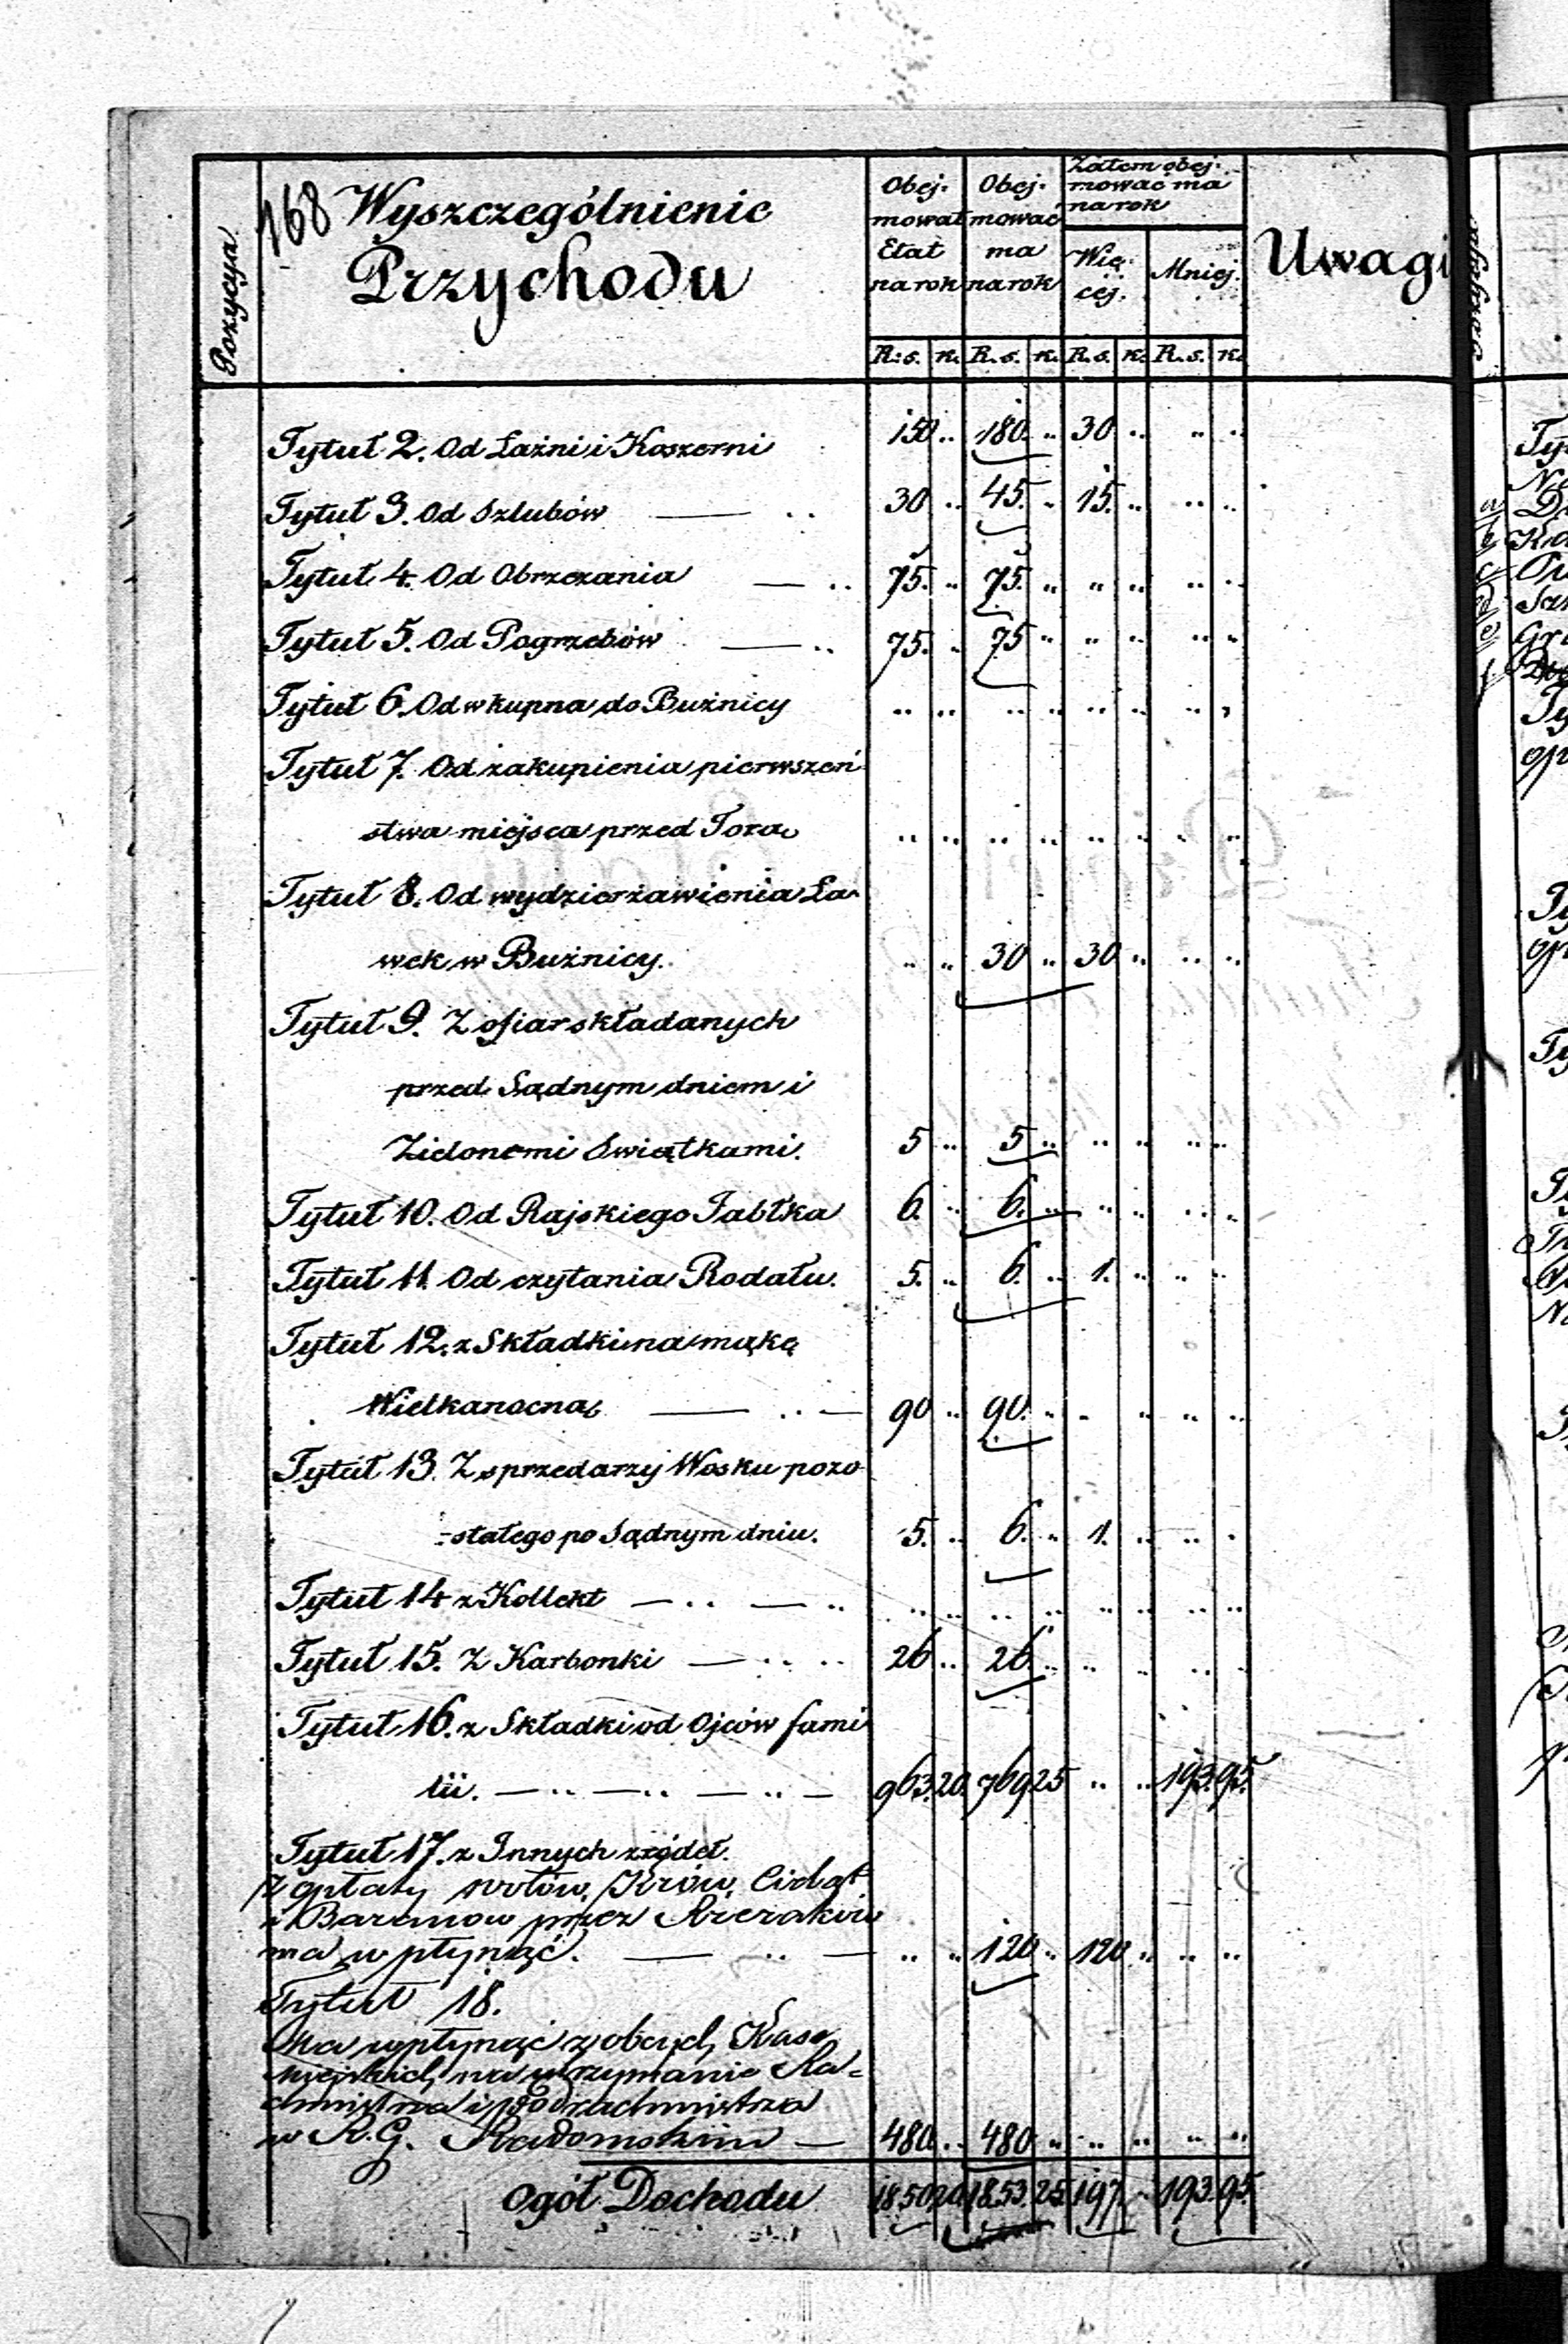 168
Pozycya
Wyszczególnienie
Przychodu
Obej-
mował
Etat
na rok
Obej-
mować
ma
na rok
Zatem obej-
mować ma
na rok
Wię-
cej.
Mniej.
Uwagi
R. s. k. R. s. k. R. s. k. R. s. k.
Tytuł 2. Od Łaźni i Koszerni 150 .. 180. .. 30 .. .. ..
Tytuł 3. Od Szlubów — .. 30 .. 45. .. 15. .. .. ..
Tytuł 4. Od Obrzezania — .. 75. .. 75. .. .. .. .. ..
Tytuł 5. Od Pogrzebów — .. 75. .. 75 .. .. .. .. ..
Tytuł 6. Od wkupna do Bużnicy .. .. .. .. .. .. .. ..
Tytuł 7. Od zakupienia pierwszeń
stwa miejsca przed Torą .. .. .. .. .. .. .. ..
Tytuł 8. Od wydzierżawienia Ła-
wek w Bużnicy. .. .. 30 .. 30 .. .. ..
Tytuł 9. Z ofiar składanych
przed Sądnym dniem i
Zielonemi Swiątkami. 5 .. 5 .. .. .. .. ..
Tytuł 10. Od Rajskiego Jabłka 6. .. 6. .. .. .. .. ..
Tytuł 11. Od czytania Rodału. 5. .. 6. .. 1. .. .. ..
Tytuł 12. z Składki na mąkę
Wielkanocną — .. — 90 .. 90. .. .. .. .. ..
Tytuł 13. Z sprzedarzy Wosku pozo
-stałego po Sądnym dniu. 5. .. 6. .. 1. .. .. ..
Tytuł 14 z Kollekt — .. — .. .. .. .. .. .. .. .. ..
Tytuł 15. Z Karbonki — .. .. 26 .. 26 .. .. .. .. ..
Tytuł 16. z Składki od Ojców fami
lii. — .. — .. — .. — 963. 20. 769 25 .. .. 193. 95.
Tytuł 17. z Innych zródeł.
Z opłaty wołów, Krów, Cieląt
i Baranow przez Rzezaków
ma wpłynąć. — .. — .. .. 120 .. 120 .. .. ..
Tytuł 18.
Ma wpłynąć z obcych Kass
miejskich na utrzymanie Ra-
chmistrza i podrachmistrza
w R. G. Radomskim — 480 .. 480 .. .. .. .. ..
Ogół Dochodu 1850 20 1853. 25 197 .. 193. 95.